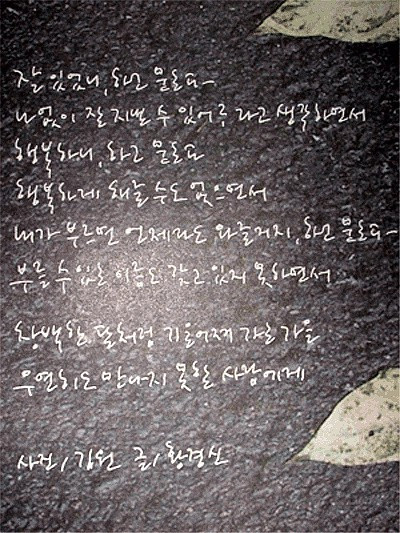 잘 있었니, 하고 묻는다-
나 없이 잘 지낼 수 있어? 라고 생각하면서
행복하니, 하고 묻는다
행복하게 해줄 수도 없으면서
내가 부르면 언제라도 와줄거지, 하고 묻는다-
부를 수 있는 이름도 갖고 있지 못하면서
창백한 달처럼 기울어져 가는 가을
우연히도 만나지 못할 사람에게
사진/김원 글/황경신